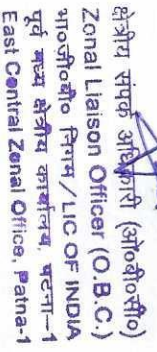 क्षेत्रीय संपर्क अधिकारी (ओ०बी०सी०)
Zonal Liaison Officer (O.B.C.)
भा०जी०बी० निगम / LIC OF INDIA
पूर्व मध्य क्षेत्रीय कार्यालय, पटना-1
East Central Zonal Office, Patna-1